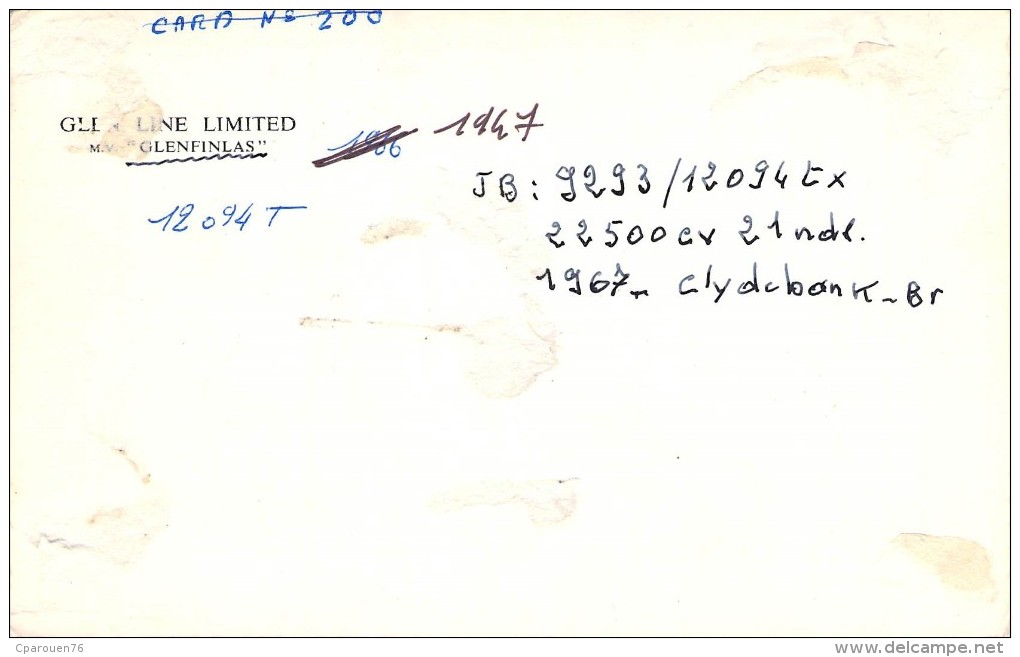 CARD No 200
GLEN LINE LIMITED
M.V. "GLENFINLAS"
1966 1947
JB: 9293/12094 Ex
12094 T
22500cv 21 nds.
1967- Clydebank-Br
Cparouen76
www.delcampe.net